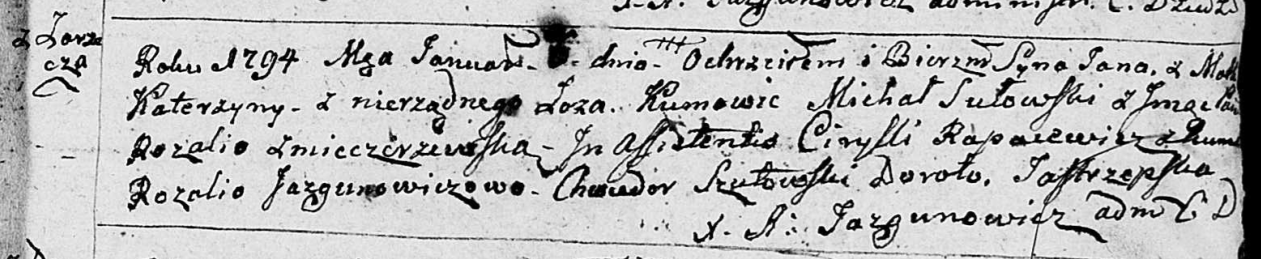 X. A. Jazgunowicz administ. C. Dzudz
z Zarze
cza
Roku 1794 Mca Januar. dnia Ochrzciłem i Bierzm Syna Jana, z Matki
Katerzyny z nierządnego Łoza. Kumowie Michał Sutowski z Jmcią Panną
Rozalio Zmieczerzewska - In Assistentio Ciryłli Rapacewicz z Kumo
Rozalio Jazgunowiczowo - Chwedor Szutowski Doroto, Jastrzepska
X. A: Jazgunowicz adm C D